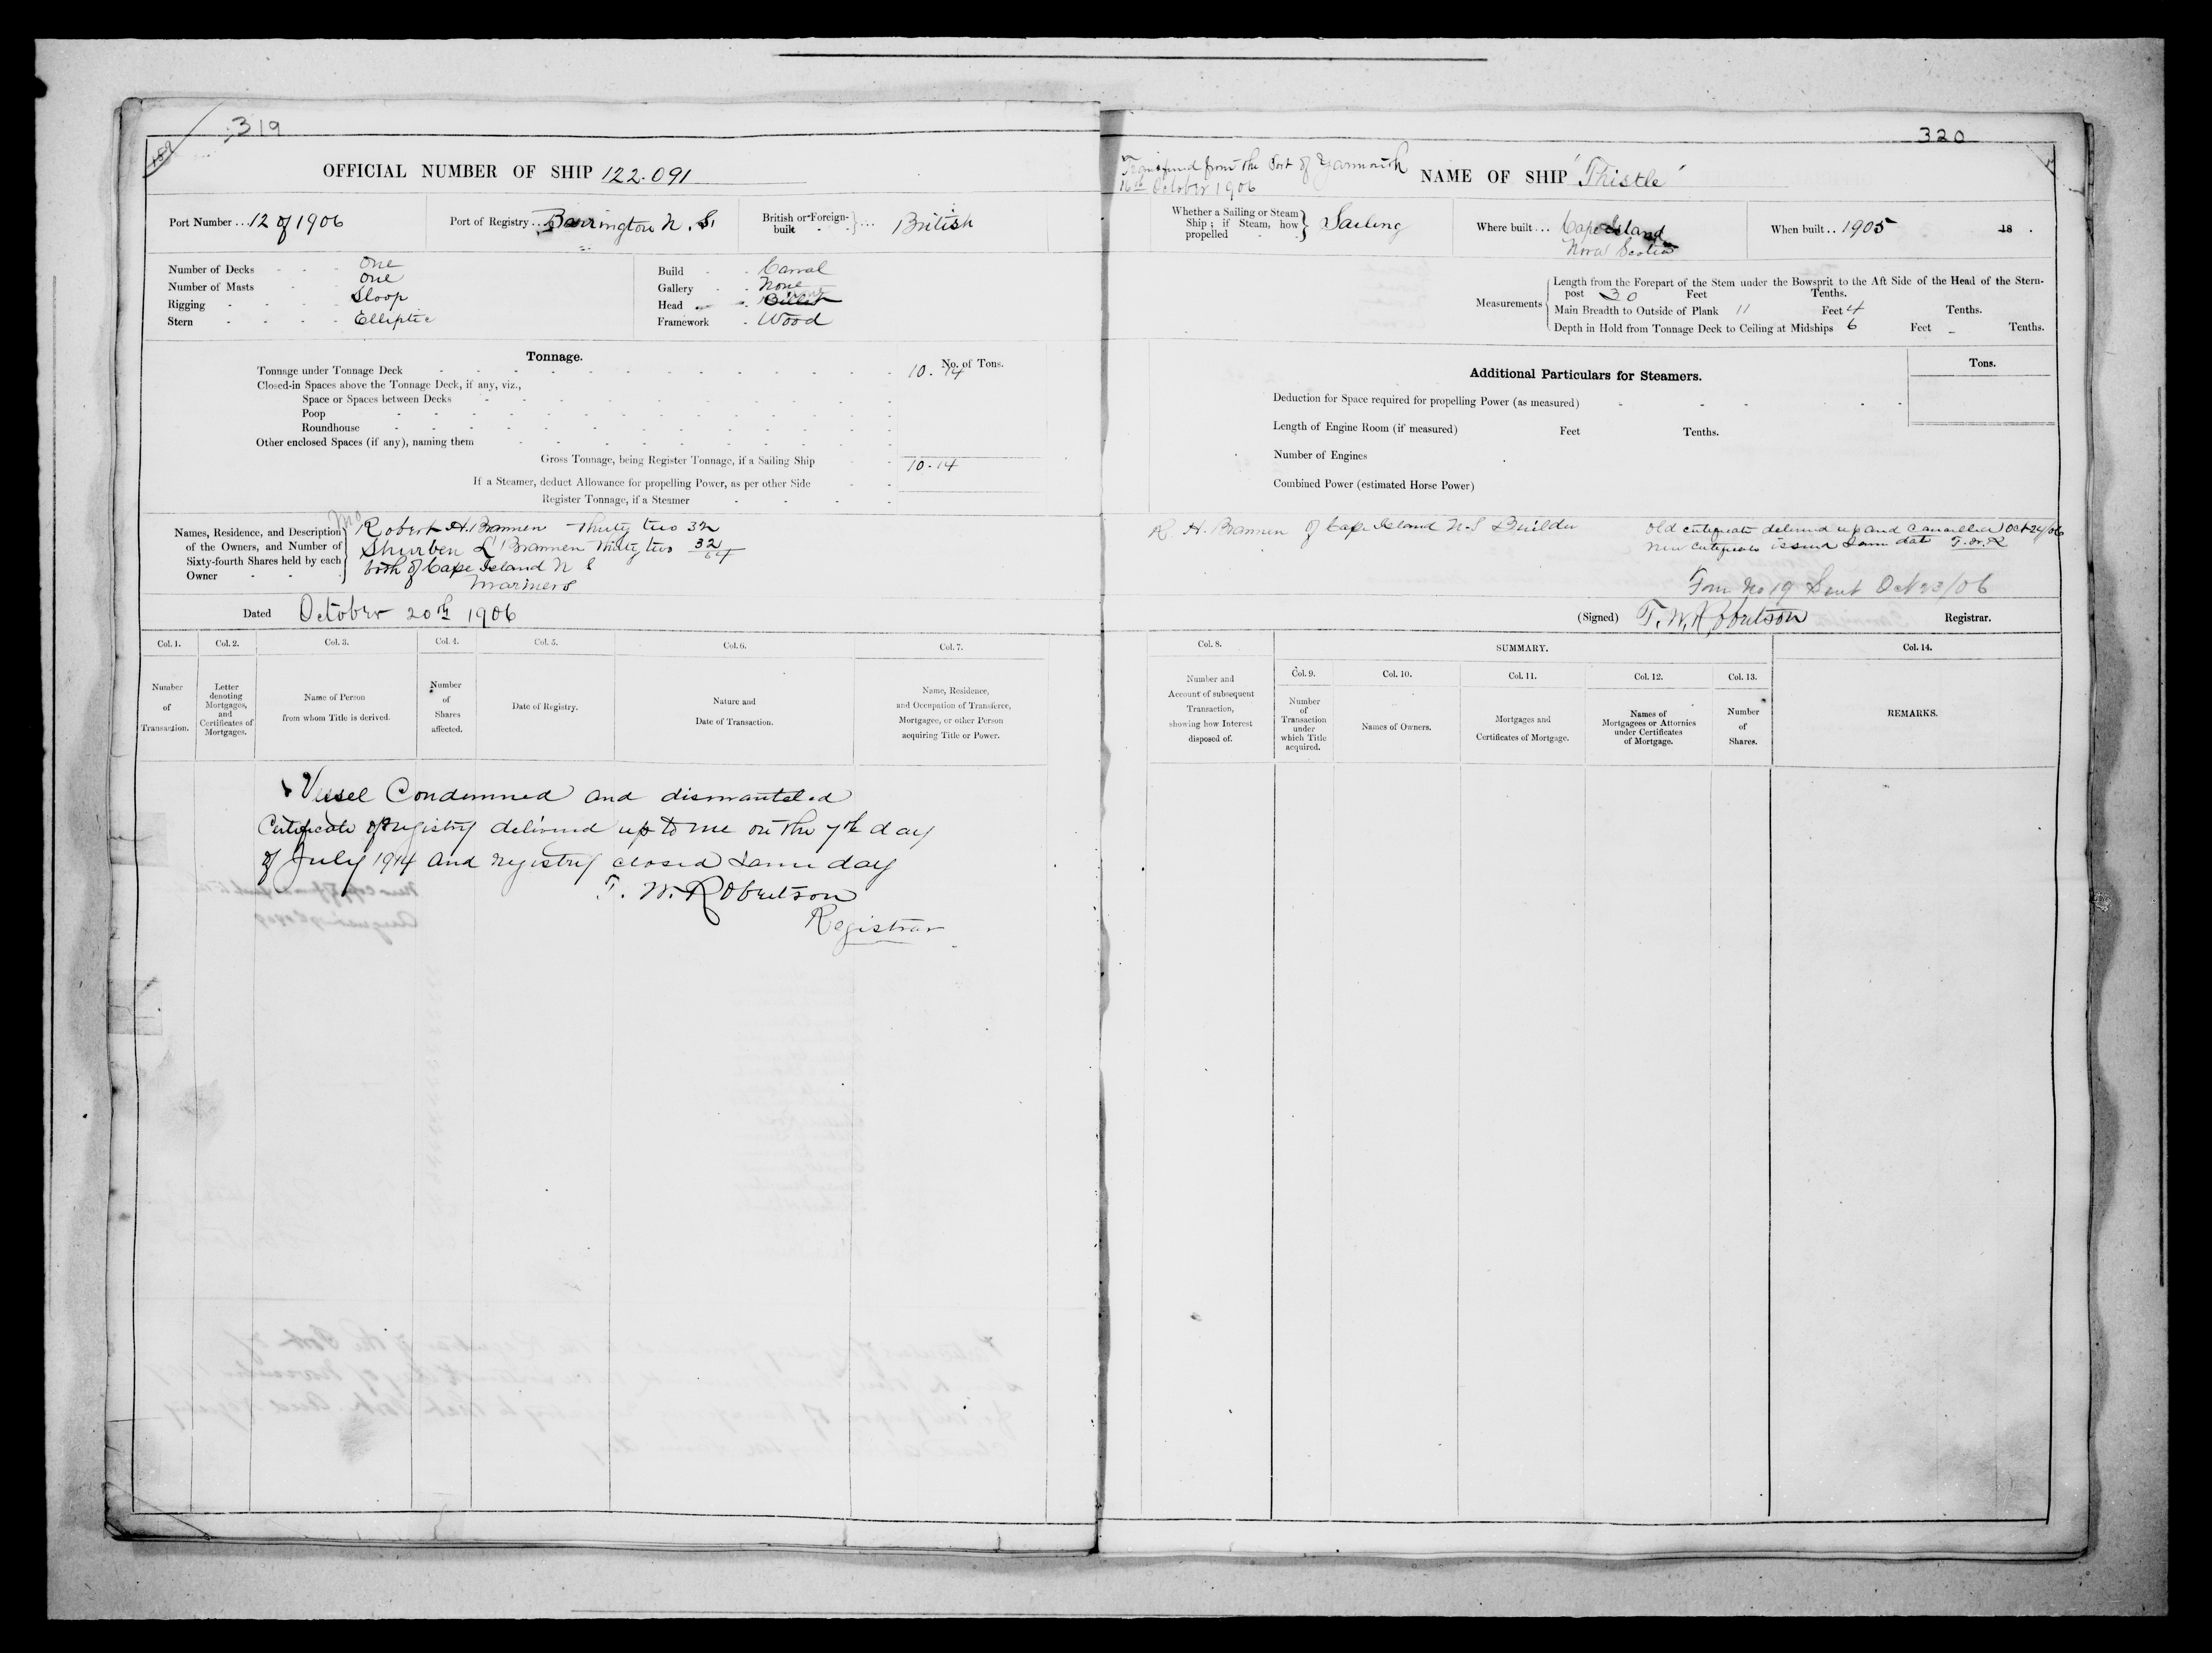 319
OFFICIAL NUMBER OF SHIP 122.091
Port Number ... 12 of 1906
Port of Registry ... Barrington N. S.
British or Foreign-built } ... British
Number of Decks - - - One
Number of Masts - - - One
Rigging - - - - Sloop
Stern - - - - Elliptic
Build - - Carval
Gallery - - None
Head - - Billet
Framework - Wood
Tonnage.
No. of Tons.
Tonnage under Tonnage Deck 10.14
Closed-in Spaces above the Tonnage Deck, if any, viz.,
Space or Spaces between Decks
Poop
Roundhouse
Other enclosed Spaces (if any), naming them
Gross Tonnage, being Register Tonnage, if a Sailing Ship 10.14
If a Steamer, deduct Allowance for propelling Power, as per other Side
Register Tonnage, if a Steamer
Names, Residence, and Description
of the Owners, and Number of
Sixty-fourth Shares held by each
Owner
Robert H. Brannen Thirty two 32
L Brannen thirty two 32/64
both of Cape Island N S
Mariners
Dated October 20th 1906
Col. 1.
Number
of
Transaction.
Col. 2.
Letter
denoting
Mortgages,
and
Certificates of
Mortgages.
Col. 3.
Name of Person
from whom Title is derived.
Col. 4.
Number
of
Shares
affected.
Col. 5.
Date of Registry.
Col. 6.
Nature and
Date of Transaction.
Col. 7.
Name, Residence,
and Occupation of Transferee,
Mortgagee, or other Person
acquiring Title or Power.
Vessel Condemned and dismanteled
Certificate of registry delivered up to me on the 7th day
of July 1914 and registry closed same day
T. W. Robertson
Registrar
320
Transferred from the Port of Yarmouth
16th October 1906
NAME OF SHIP "Thistle"
Whether a Sailing or Steam
Ship; if Steam, how
propelled } Sailing
Where built ... Cape Island
Nova Scotia
When built .. 1905
18 .
Measurements
Length from the Forepart of the Stem under the Bowsprit to the Aft Side of the Head of the Stern-
post 30 Feet Tenths.
Main Breadth to Outside of Plank 11 Feet 4 Tenths.
Depth in Hold from Tonnage Deck to Ceiling at Midships 6 Feet - Tenths.
Additional Particulars for Steamers.
Tons.
Deduction for Space required for propelling Power (as measured)
Length of Engine Room (if measured) Feet Tenths.
Number of Engines
Combined Power (estimated Horse Power)
R. H. Brannen of Cape Island N.S Builder
Old certificate delivered up and Cancelled Oct 24/06
New certificate issued Same date T.W.R
Form No 19 Sent Oct 23/06
(Signed) T. W. Robertson Registrar.
Col. 8.
Number and
Account of subsequent
Transaction,
showing how Interest
disposed of.
SUMMARY.
Col. 9.
Number
of
Transaction
under
which Title
acquired.
Col. 10.
Names of Owners.
Col. 11.
Mortgages and
Certificates of Mortgage.
Col. 12.
Names of
Mortgagees or Attornies
under Certificates
of Mortgage.
Col. 13.
Number
of
Shares.
Col. 14.
REMARKS.